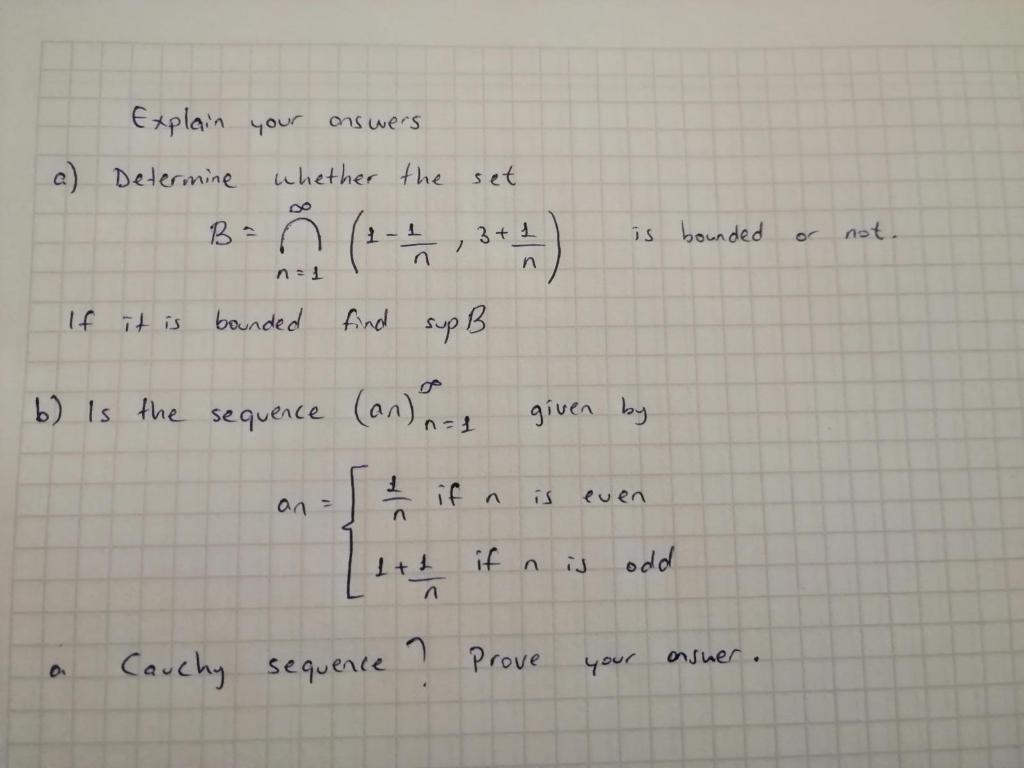 Explain your answers
a) Determine whether the set
B = ⋂_{n=1}^{∞} (1 - 1/n , 3 + 1/n) is bounded or not.
If it is bounded find sup B
b) Is the sequence (an)_{n=1}^{∞} given by
an = { 1/n if n is even
1 + 1/n if n is odd
a Cauchy sequence? Prove your answer.